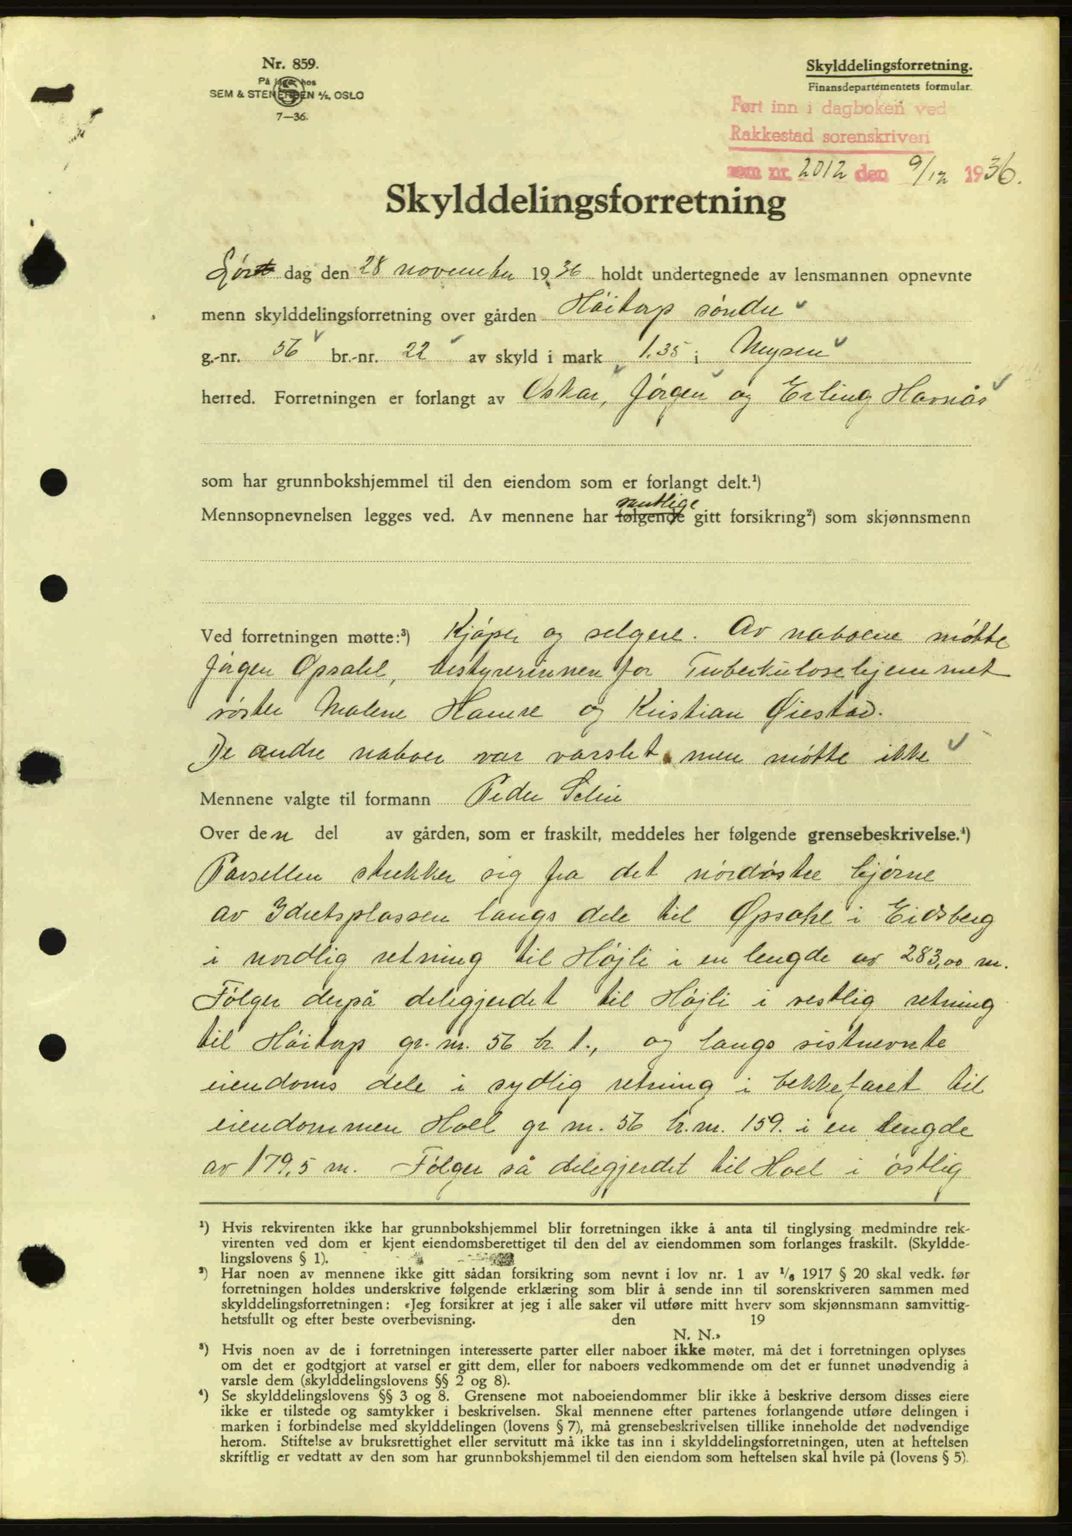 Nr. 859.
På lager hos
SEM & STENERSEN A/S, OSLO
7—36.
Skylddelingsforretning.
Finansdepartementets formular.
Ført inn i dagboken ved
Rakkestad sorenskriveri
som nr. 2012 den 9/12 1936.
Skylddelingsforretning
Lør dag den 28 november 1936 holdt undertegnede av lensmannen opnevnte
menn skylddelingsforretning over gården Høitorp søndre
g.-nr. 56 br.-nr. 22 av skyld i mark 1.35 i Mysen
herred. Forretningen er forlangt av Oskar, Jørgen og Erling Havnås
som har grunnbokshjemmel til den eiendom som er forlangt delt.¹)
samtlige
Mennsopnevnelsen legges ved. Av mennene har følgende gitt forsikring²) som skjønnsmenn
Ved forretningen møtte:³) Kjøper og selgere. Av naboene møtte
Jørgen Opsahl, bestyrerinnen for Tuberkulosehjemmet
søster Malene Hamre og Kristian Øiestad.
De andre naboer var varslet men møtte ikke
Mennene valgte til formann Peder
Over den del av gården, som er fraskilt, meddeles her følgende grensebeskrivelse.⁴)
Parsellen strekker sig fra det nordøstre hjørne
av Idretsplassen langs dele til Øpsahl i Eidsberg
i nordlig retning til Højli i en lengde av 283,00 m.
Følger derpå delegjerdet til Højli i vestlig retning
til Høitorp gr. nr. 56 br. 1., og langs sistnevnte
eiendoms dele i sydlig retning i bekkefaret til
eiendommen Hoel gr nr. 56 br. nr. 159. i en lengde
av 179,5 m. Følger så delegjerdet til Hoel i østlig
¹) Hvis rekvirenten ikke har grunnbokshjemmel blir forretningen ikke å anta til tinglysing medmindre rek-
virenten ved dom er kjent eiendomsberettiget til den del av eiendommen som forlanges fraskilt. (Skyldde-
lingslovens § 1).
²) Har noen av mennene ikke gitt sådan forsikring som nevnt i lov nr. 1 av 1/6 1917 § 20 skal vedk. før
forretningen holdes underskrive følgende erklæring som blir å sende inn til sorenskriveren sammen med
skylddelingsforretningen: «Jeg forsikrer at jeg i alle saker vil utføre mitt hverv som skjønnsmann samvittig-
hetsfullt og efter beste overbevisning. den 19
N. N.»
³) Hvis noen av de i forretningen interesserte parter eller naboer ikke møter, må det i forretningen oplyses
om det er godtgjort at varsel er gitt dem, eller for naboers vedkommende om det er funnet unødvendig å
varsle dem (skylddelingslovens §§ 2 og 8).
⁴) Se skylddelingslovens §§ 3 og 8. Grensene mot naboeiendommer blir ikke å beskrive dersom disses eiere
ikke er tilstede og samtykker i beskrivelsen. Skal mennene efter partenes forlangende utføre delingen i
marken i forbindelse med skylddelingen (lovens § 7), må grensebeskrivelsen tillike inneholde det nødvendige
herom. Stiftelse av bruksrettighet eller servitutt må ikke tas inn i skylddelingsforretningen, uten at heftelsen
skriftlig er vedtatt av den som har grunnbokshjemmel til den eiendom som heftelsen skal hvile på (lovens § 5).